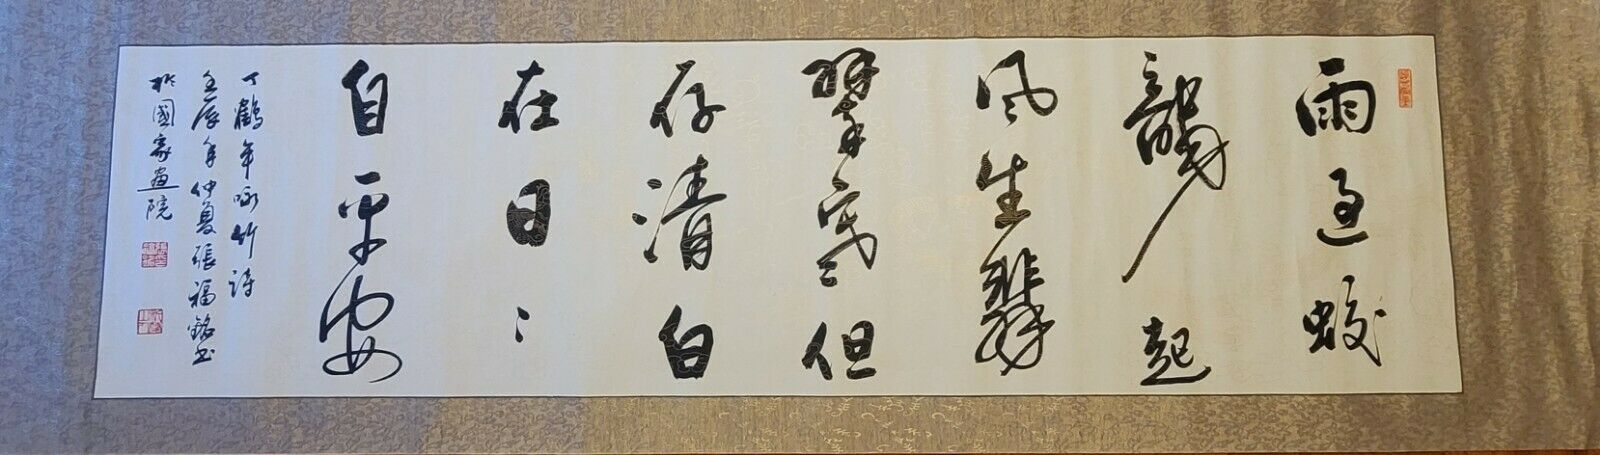 雨過蛟
龍起
風生翡
翠寒但
存清白
在日〻
自平安
丁鶴年咏竹詩
壬辰年仲夏張福銘书
於國家畫院